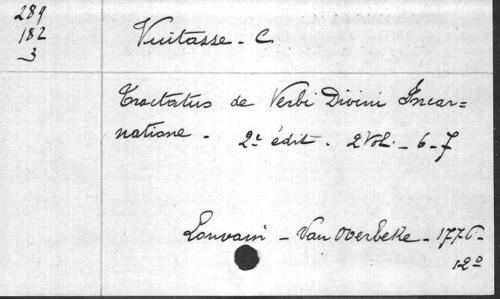 289
182
3
Vuitasse - C
Tractatus de Verbi Divini Incar=
natione - 2e édit. 2 Vol. - 6-7
Louvain - Van Overbeke - 1776-
12º